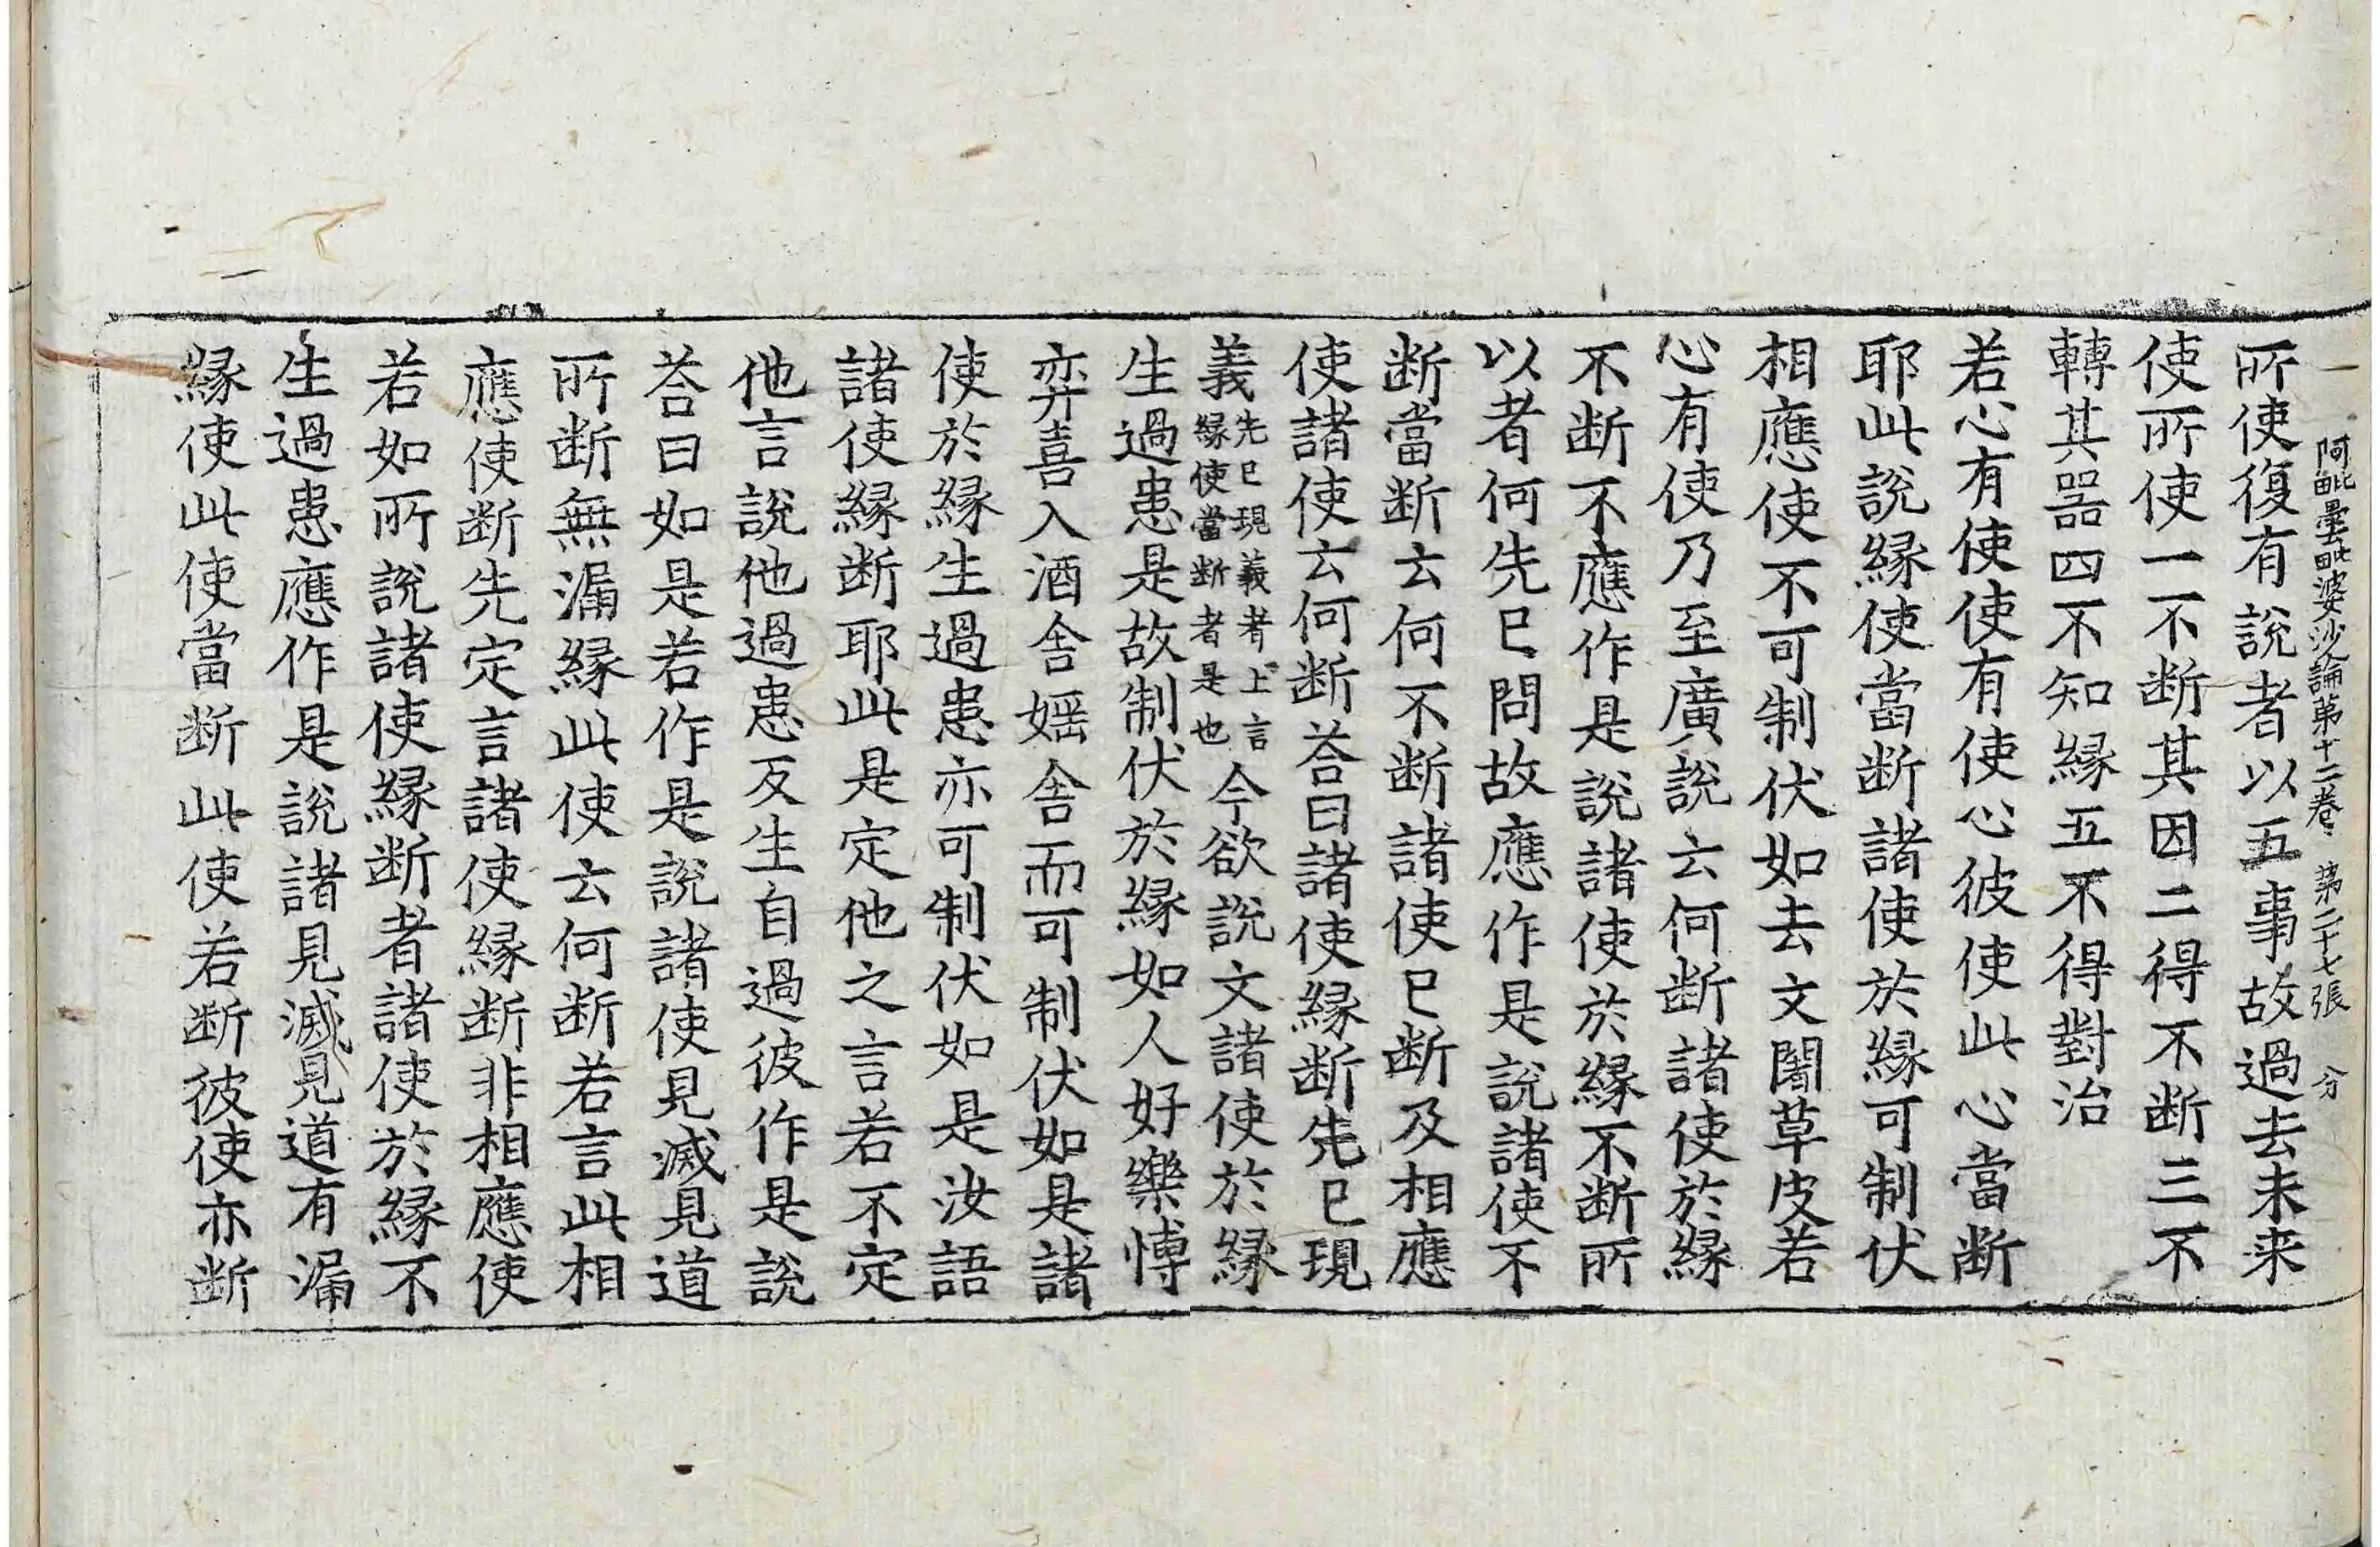 阿毗曇毗婆沙論第十二卷 第二十七張 分
所使復有說者以五事故過去未来
使所使一不断其因二得不断三不
轉其器四不知緣五不得對治
若心有使使有使心彼使此心當断
耶此說緣使當断諸使於緣可制伏
相應使不可制伏如去文闍草皮若
心有使乃至廣說云何断諸使於緣
不断不應作是說諸使於緣不断所
以者何先已問故應作是說諸使不
断當断云何不断諸使已断及相應
使諸使云何断荅曰諸使緣断先已現
義先已現義者上言緣使當断者是也今欲說文諸使於緣
生過患是故制伏於緣如人好樂博
弈喜入酒舍婬舍而可制伏如是諸
使於緣生過患亦可制伏如是汝語
諸使緣断耶此是定他之言若不定
他言說他過患反生自過彼作是說
荅曰如是若作是說諸使見滅見道
所断無漏緣此使云何断若言此相
應使断先定言諸使緣断非相應使
若如所說諸使緣断者諸使於緣不
生過患應作是說諸見滅見道有漏
緣使此使當断此使若断彼使亦断